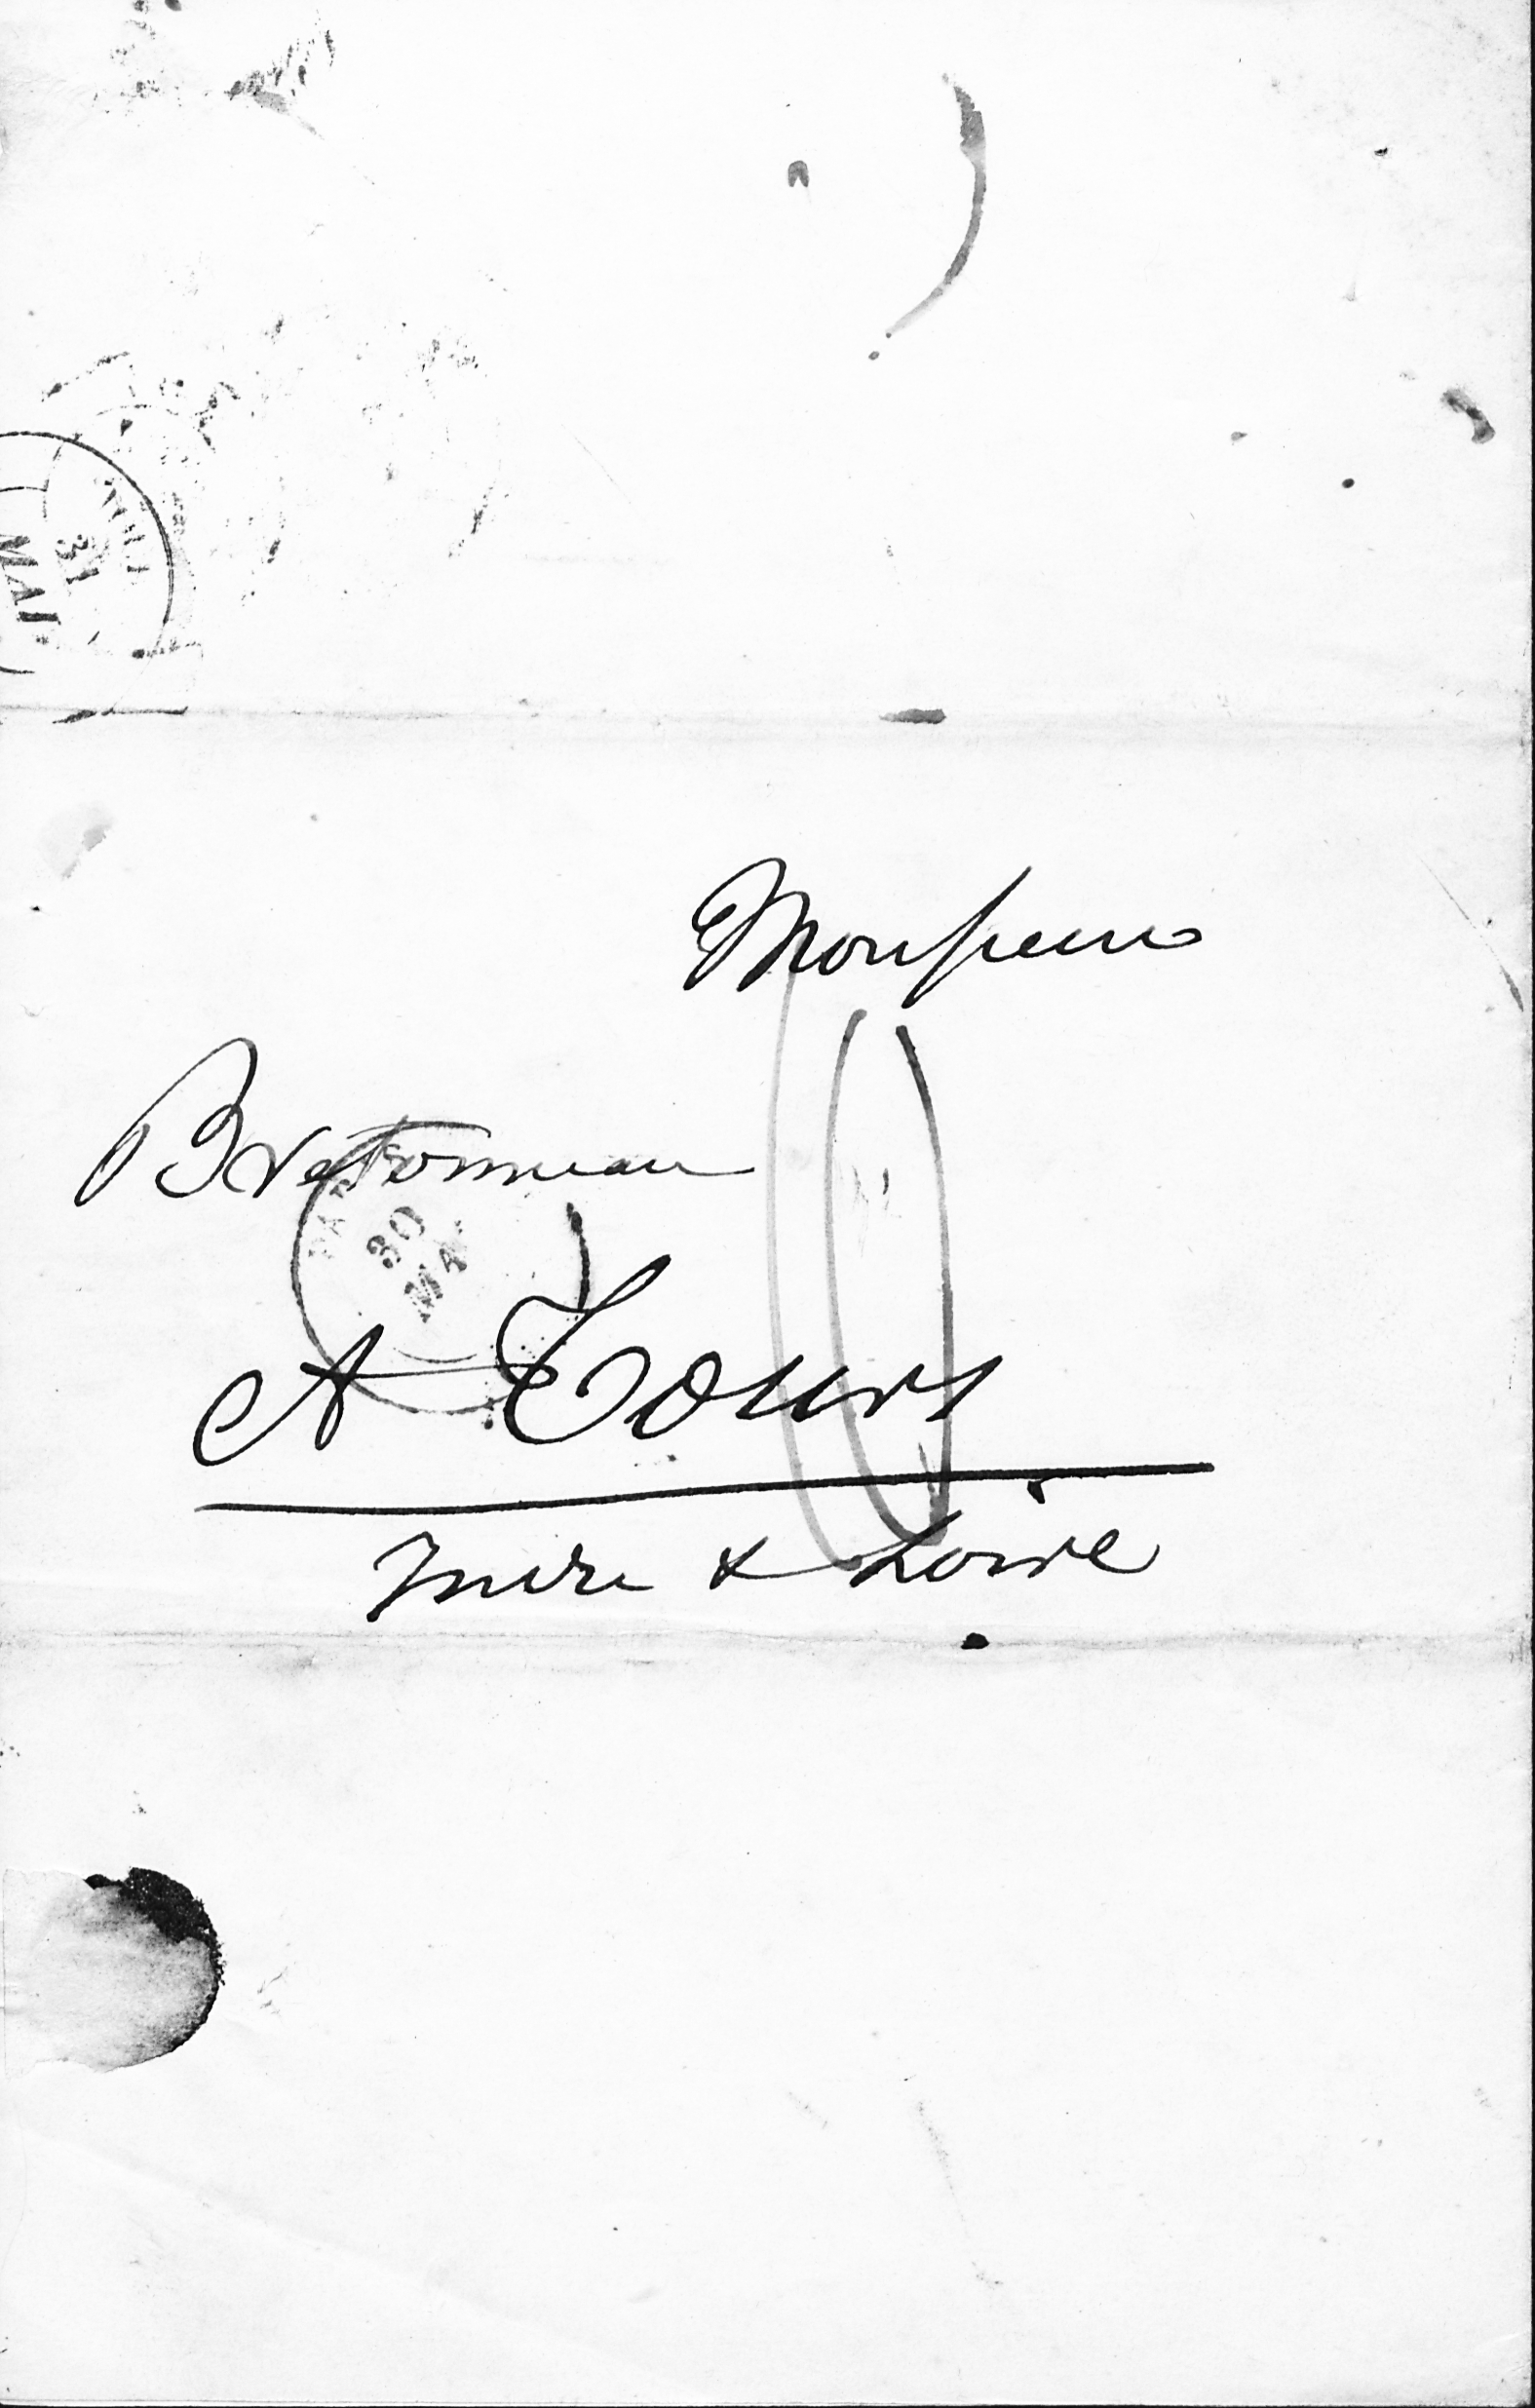 31
MAI
Monsieur
Bretonneau
30
MA
A Tours
Indre & Loire